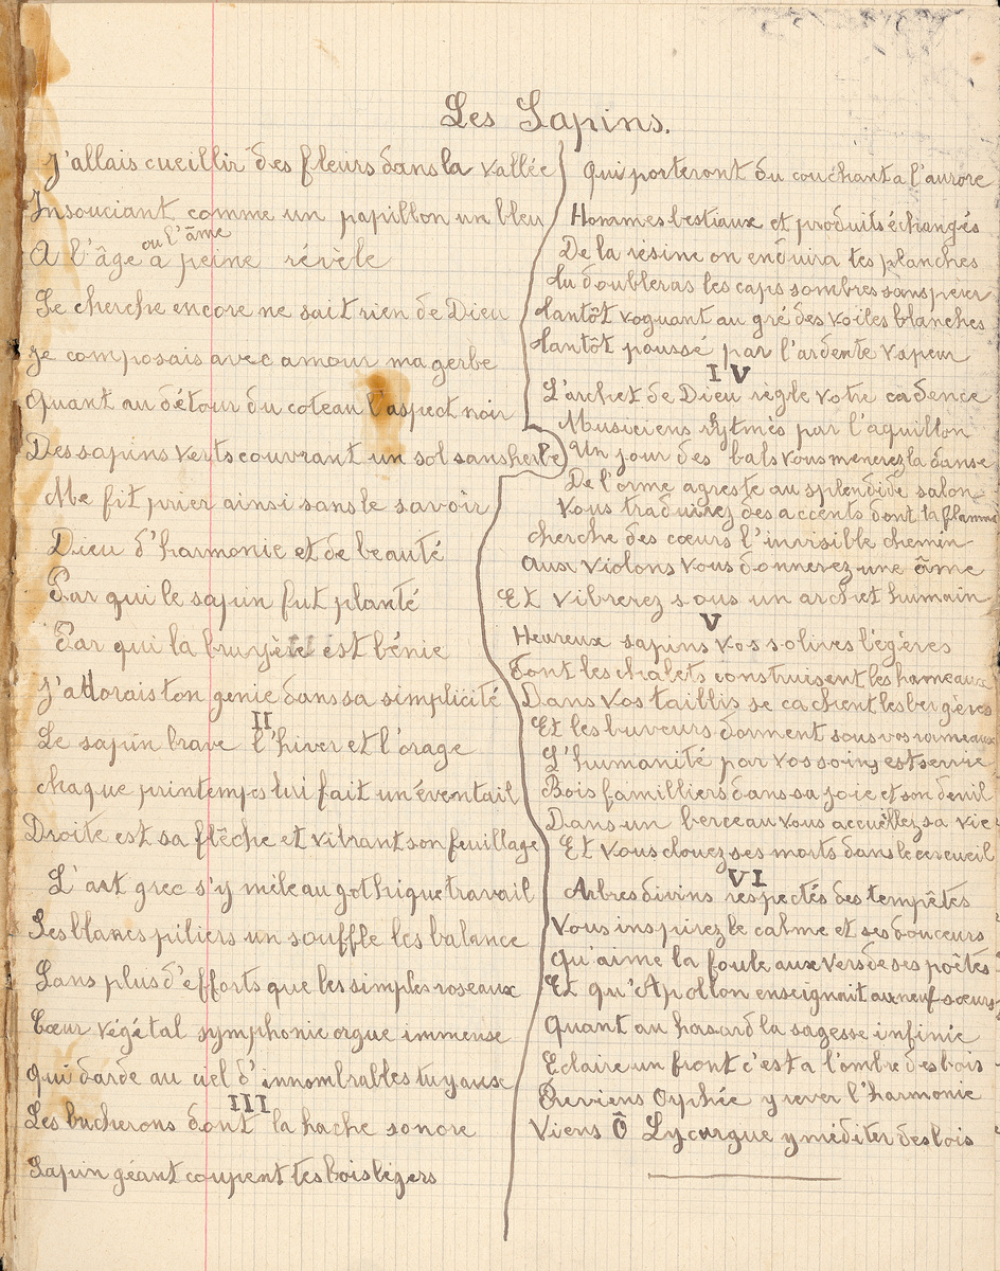 Les Sapins.
J'allais cueillir des fleurs dans la vallée
Insouciant comme un papillon un bleu
ou l'âme
A l'âge à peine révèle
Se cherche encore ne sait rien de Dieu
Je composais avec amour ma gerbe
Quant au détour du coteau l'aspect noir
Des sapins verts couvrant un sol sans herbe
Me fit prier ainsi sans le savoir
Dieu d'harmonie et de beauté
Par qui le sapin fut planté
Par qui la bruyère est bénie
J'adorais ton genie dans sa simplicité
II
Le sapin brave l'hiver et l'orage
chaque printemps lui fait un éventail
Droite est sa flêche et vibrant son feuillage
L'art grec s'y mêle au gothique travail
Ses blancs piliers un souffle les balance
Sans plus d'efforts que les simples roseaux
Cœur végétal symphonie orgue immense
Qui darde au ciel d'innombrables tuyaux
III
Les bucherons dont la hache sonore
Sapin géant coupent tes bois légers
Qui porteront du couchant a l'aurore
Hommes bestiaux et produits échangés
De la résine on enduira tes planches
Tu doubleras les caps sombres sans peur
Tantôt voguant au gré des voiles blanches
Tantôt poussé par l'ardente vapeur
IV
L'archet de Dieu règle votre cadence
Musiciens rytmés par l'aquillon
Un jour des bals vous menerez la danse
De l'orme agreste au splendide salon
Vous traduirez des accents dont la flamme
cherche des cœurs l'invisible chemin
Aux violons vous donnerez une âme
Et vibrerez sous un archet humain
V
Heureux sapins vos solives légères
Font les chalets construisent les hameaux
Dans vos taillis se cachent les bergères
Et les buveurs dorment sous vos rameaux
L'humanité par vos soins est servie
Bois familliers dans sa joie et son deuil
Dans un berceau vous accuëllez sa vie
Et vous clouez ses morts dans le cercueil
VI
Arbres divins respectés des tempêtes
Vous inspirez le calme et ses douceurs
Qu'aime la foule aux vers de ses poêtes
Et qu'Apollon enseignait aux neuf sœurs
Quant au hasard la sagesse infinie
Eclaire un front c'est a l'ombre des bois
Reviens Orphée y rever l'harmonie
Viens Ô Lycurgue y méditer des lois